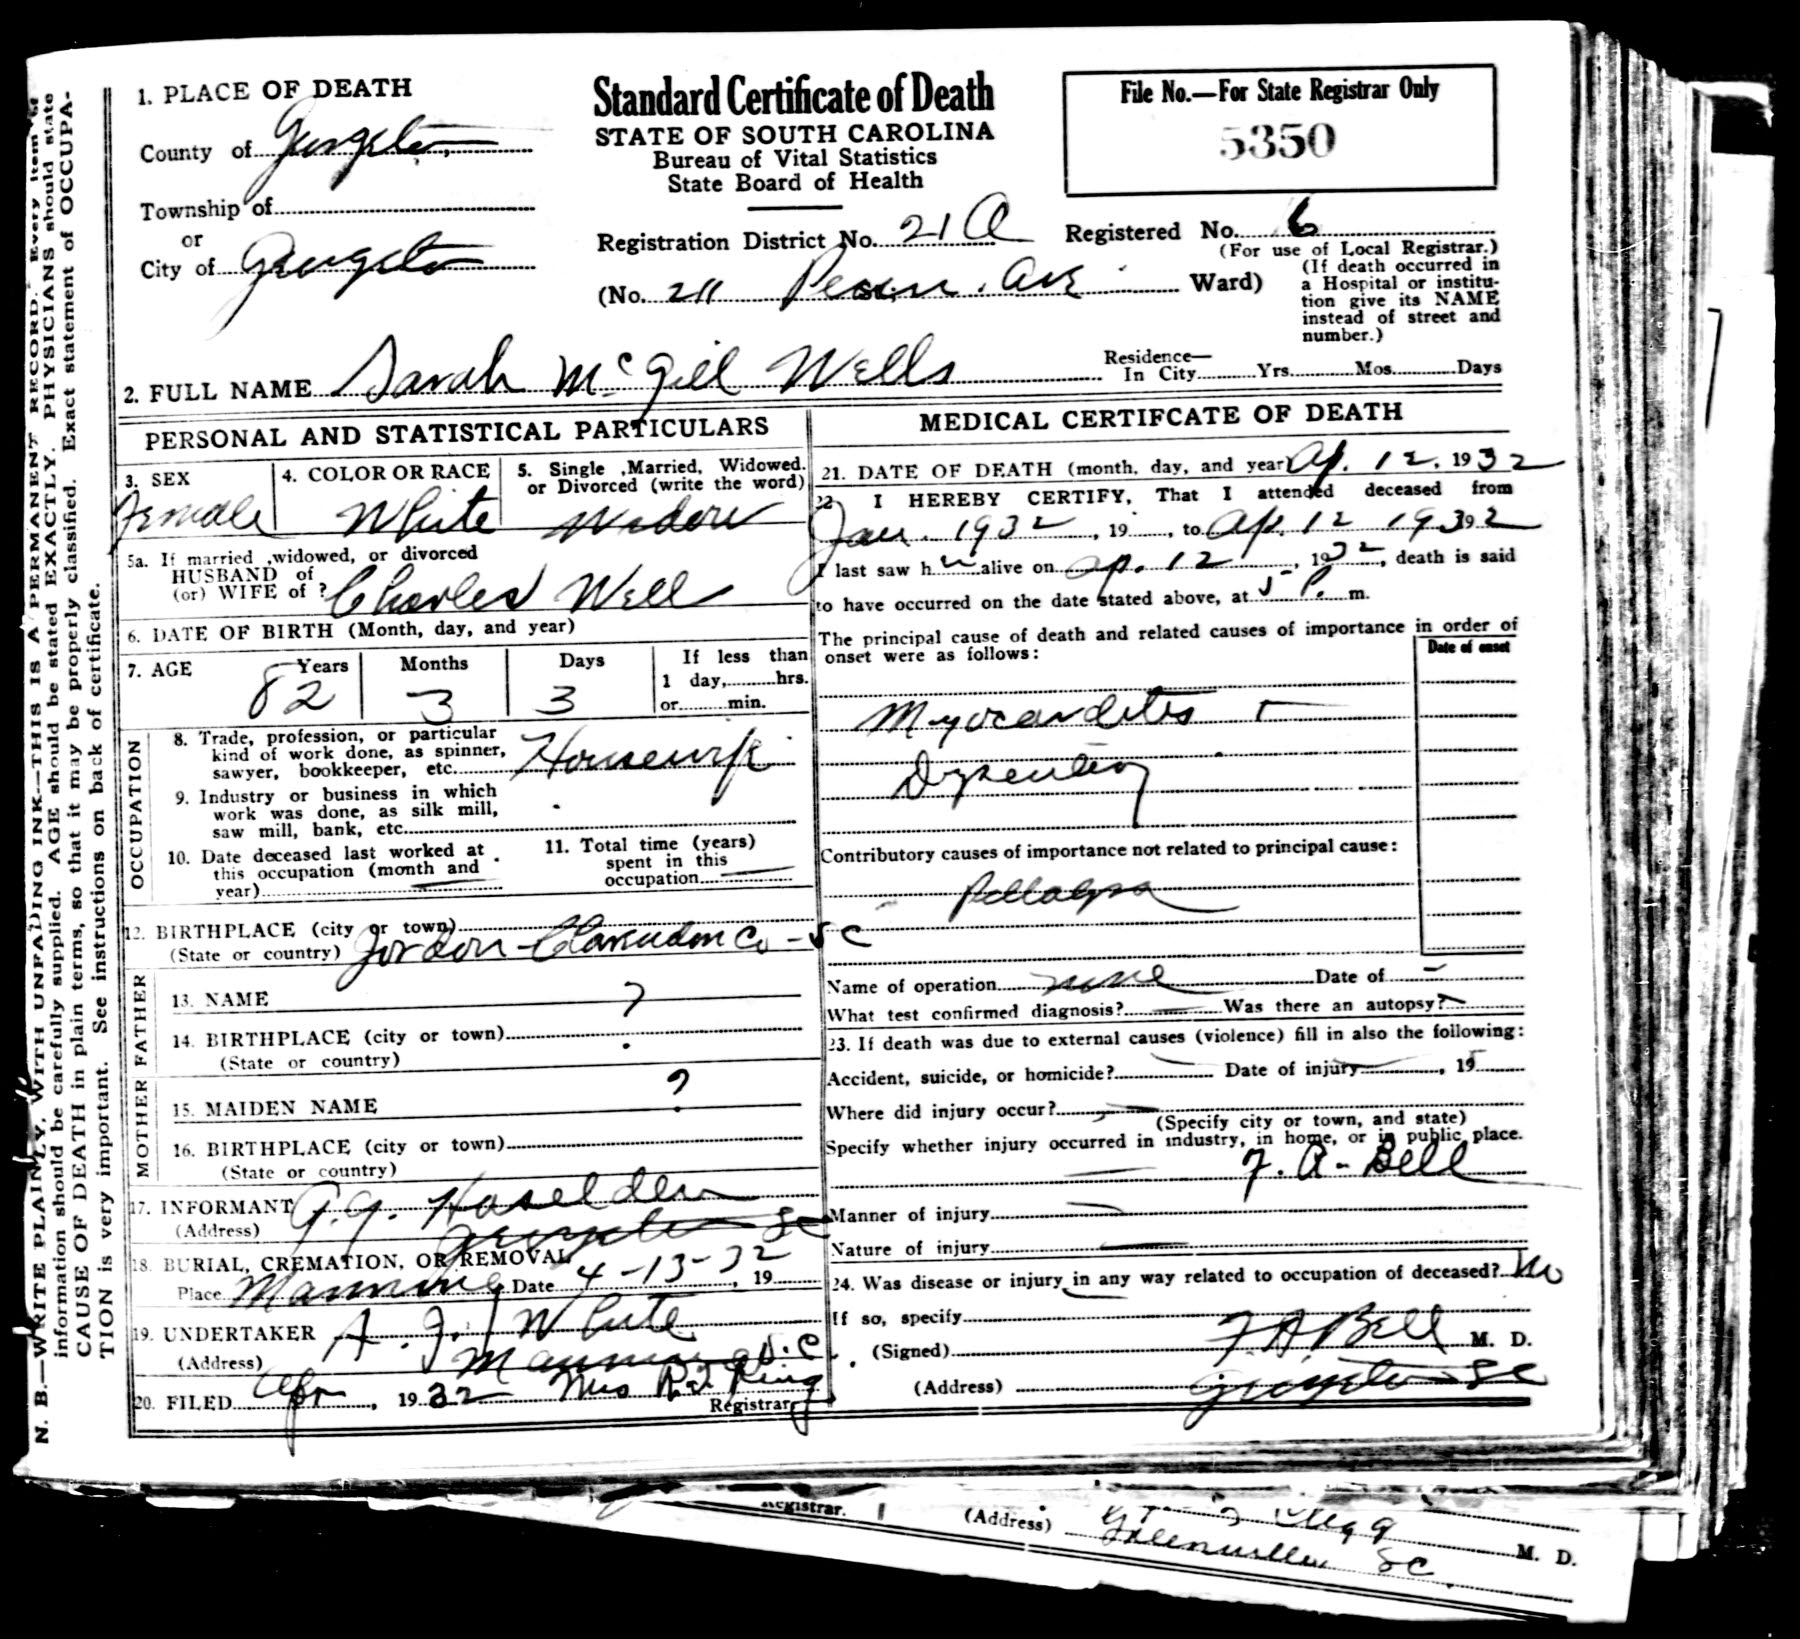 1. PLACE OF DEATH
County of Georgeto
Township of
or
City of Georgeto
Standard Certificate of Death
STATE OF SOUTH CAROLINA
Bureau of Vital Statistics
State Board of Health
File No.—For State Registrar Only
5350
Registration District No. 21 A
Registered No. 6
(For use of Local Registrar.)
(No. 211 Ave Ward)
(If death occurred in
a Hospital or institu-
tion give its NAME
instead of street and
number.)
2. FULL NAME Sarah McGill Wells
Residence—
In City Yrs. Mos. Days
PERSONAL AND STATISTICAL PARTICULARS
3. SEX
Female
4. COLOR OR RACE
White
5. Single ,Married, Widowed.
or Divorced (write the word)
Widow
5a. If married ,widowed, or divorced
HUSBAND of
(or) WIFE of ? Charles Well
6. DATE OF BIRTH (Month, day, and year)
7. AGE
Years Months Days
82 3 3
If less than
1 day, hrs.
or min.
OCCUPATION
8. Trade, profession, or particular
kind of work done, as spinner,
sawyer, bookkeeper, etc. Housewife
9. Industry or business in which
work was done, as silk mill,
saw mill, bank, etc.
10. Date deceased last worked at
this occupation (month and
year)
11. Total time (years)
spent in this
occupation
12. BIRTHPLACE (city or town)
(State or country) Jordon - Clarendon Co - SC
FATHER
13. NAME ?
14. BIRTHPLACE (city or town)
(State or country)
MOTHER
15. MAIDEN NAME ?
16. BIRTHPLACE (city or town)
(State or country)
17. INFORMANT Haselden
(Address) Georgeto SC
18. BURIAL, CREMATION, OR REMOVAL
Place Manning Date 4-13-32, 19
19. UNDERTAKER A. J. White
(Address) Manning S.C.
20. FILED Apr, 1932 Mrs King
Registrar
MEDICAL CERTIFCATE OF DEATH
21. DATE OF DEATH (month, day, and year) Ap. 12, 1932
22 I HEREBY CERTIFY, That I attended deceased from
Jan. 1932, 19, to Ap. 12 1932
I last saw h alive on Ap. 12, 1932, death is said
to have occurred on the date stated above, at 5 P. m.
The principal cause of death and related causes of importance in order of
onset were as follows:
Date of onset
Myocarditis
Dysentery
Contributory causes of importance not related to principal cause:
Pellagra
Name of operation none Date of -
What test confirmed diagnosis? Was there an autopsy?
23. If death was due to external causes (violence) fill in also the following:
Accident, suicide, or homicide? Date of injury, 19
Where did injury occur?
(Specify city or town, and state)
Specify whether injury occurred in industry, in home, or in public place.
F. A. Bell
Manner of injury
Nature of injury
24. Was disease or injury in any way related to occupation of deceased? No
If so, specify
(Signed) F A Bell M. D.
(Address) Georgeto SC
N. B.—WRITE PLAINLY, WITH UNFADING INK—THIS IS A PERMANENT RECORD. Every item of
information should be carefully supplied. AGE should be stated EXACTLY. PHYSICIANS should state
CAUSE OF DEATH in plain terms, so that it may be properly classified. Exact statement of OCCUPA-
TION is very important. See instructions on back of certificate.
Registrar.
(Address)
Greenville SC
M. D.